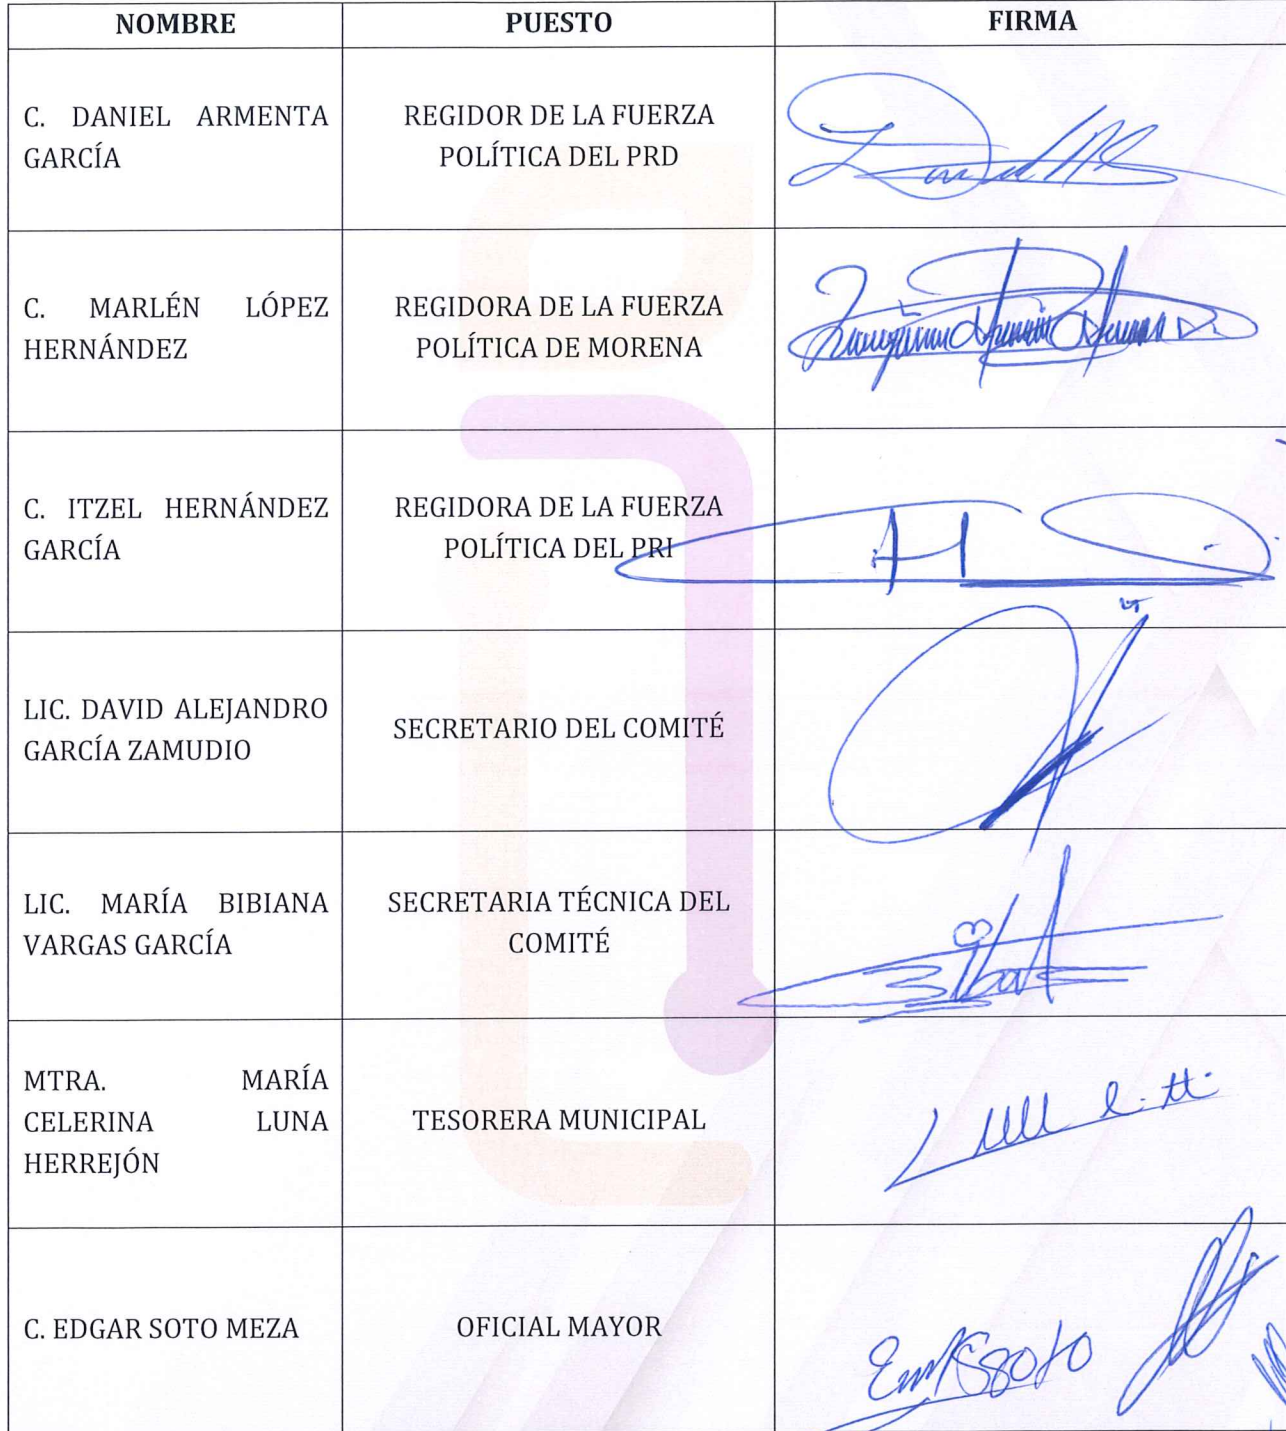 NOMBRE
PUESTO
FIRMA
C. DANIEL ARMENTA
GARCÍA
REGIDOR DE LA FUERZA
POLÍTICA DEL PRD
C. MARLÉN LÓPEZ
HERNÁNDEZ
REGIDORA DE LA FUERZA
POLÍTICA DE MORENA
C. ITZEL HERNÁNDEZ
GARCÍA
REGIDORA DE LA FUERZA
POLÍTICA DEL PRI
LIC. DAVID ALEJANDRO
GARCÍA ZAMUDIO
SECRETARIO DEL COMITÉ
LIC. MARÍA BIBIANA
VARGAS GARCÍA
SECRETARIA TÉCNICA DEL
COMITÉ
MTRA. MARÍA
CELERINA LUNA
HERREJÓN
TESORERA MUNICIPAL
C. EDGAR SOTO MEZA
OFICIAL MAYOR